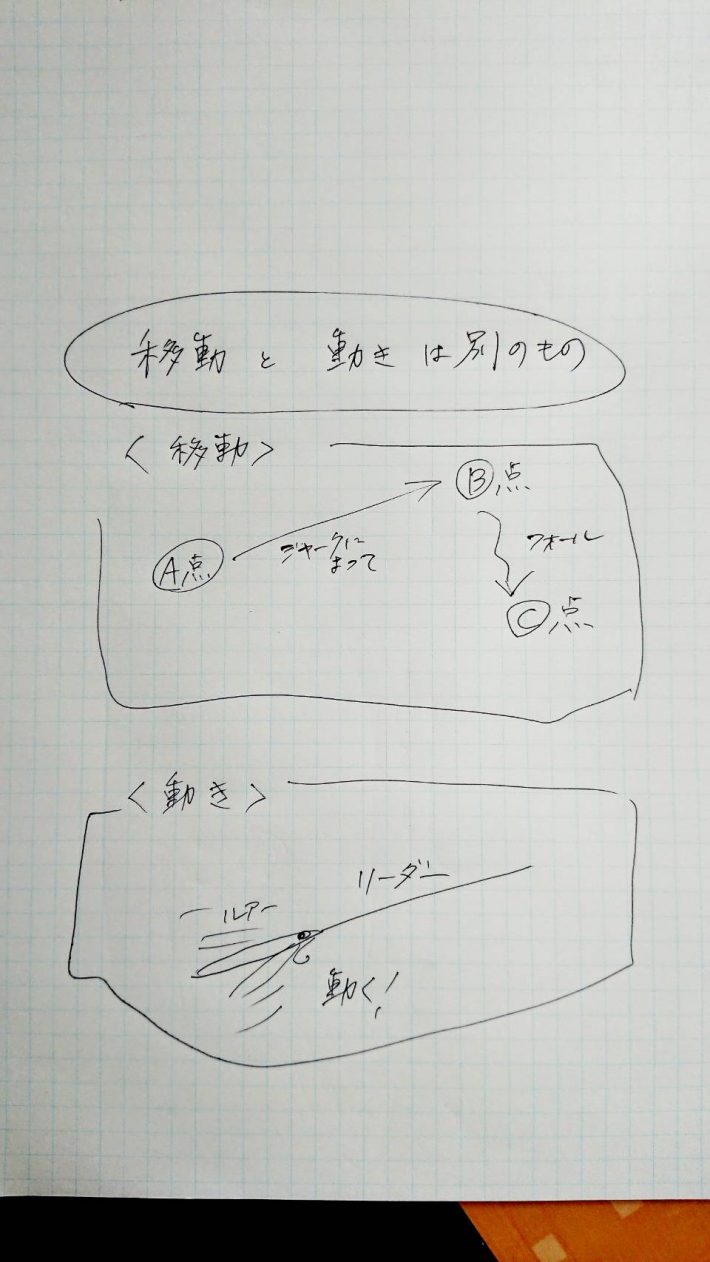 移動と動きは別のもの
<移動>
Ⓑ点
ジャークに
よって
フォール
Ⓐ点
Ⓒ点
<動き>
リーダー
ルアー
動く!